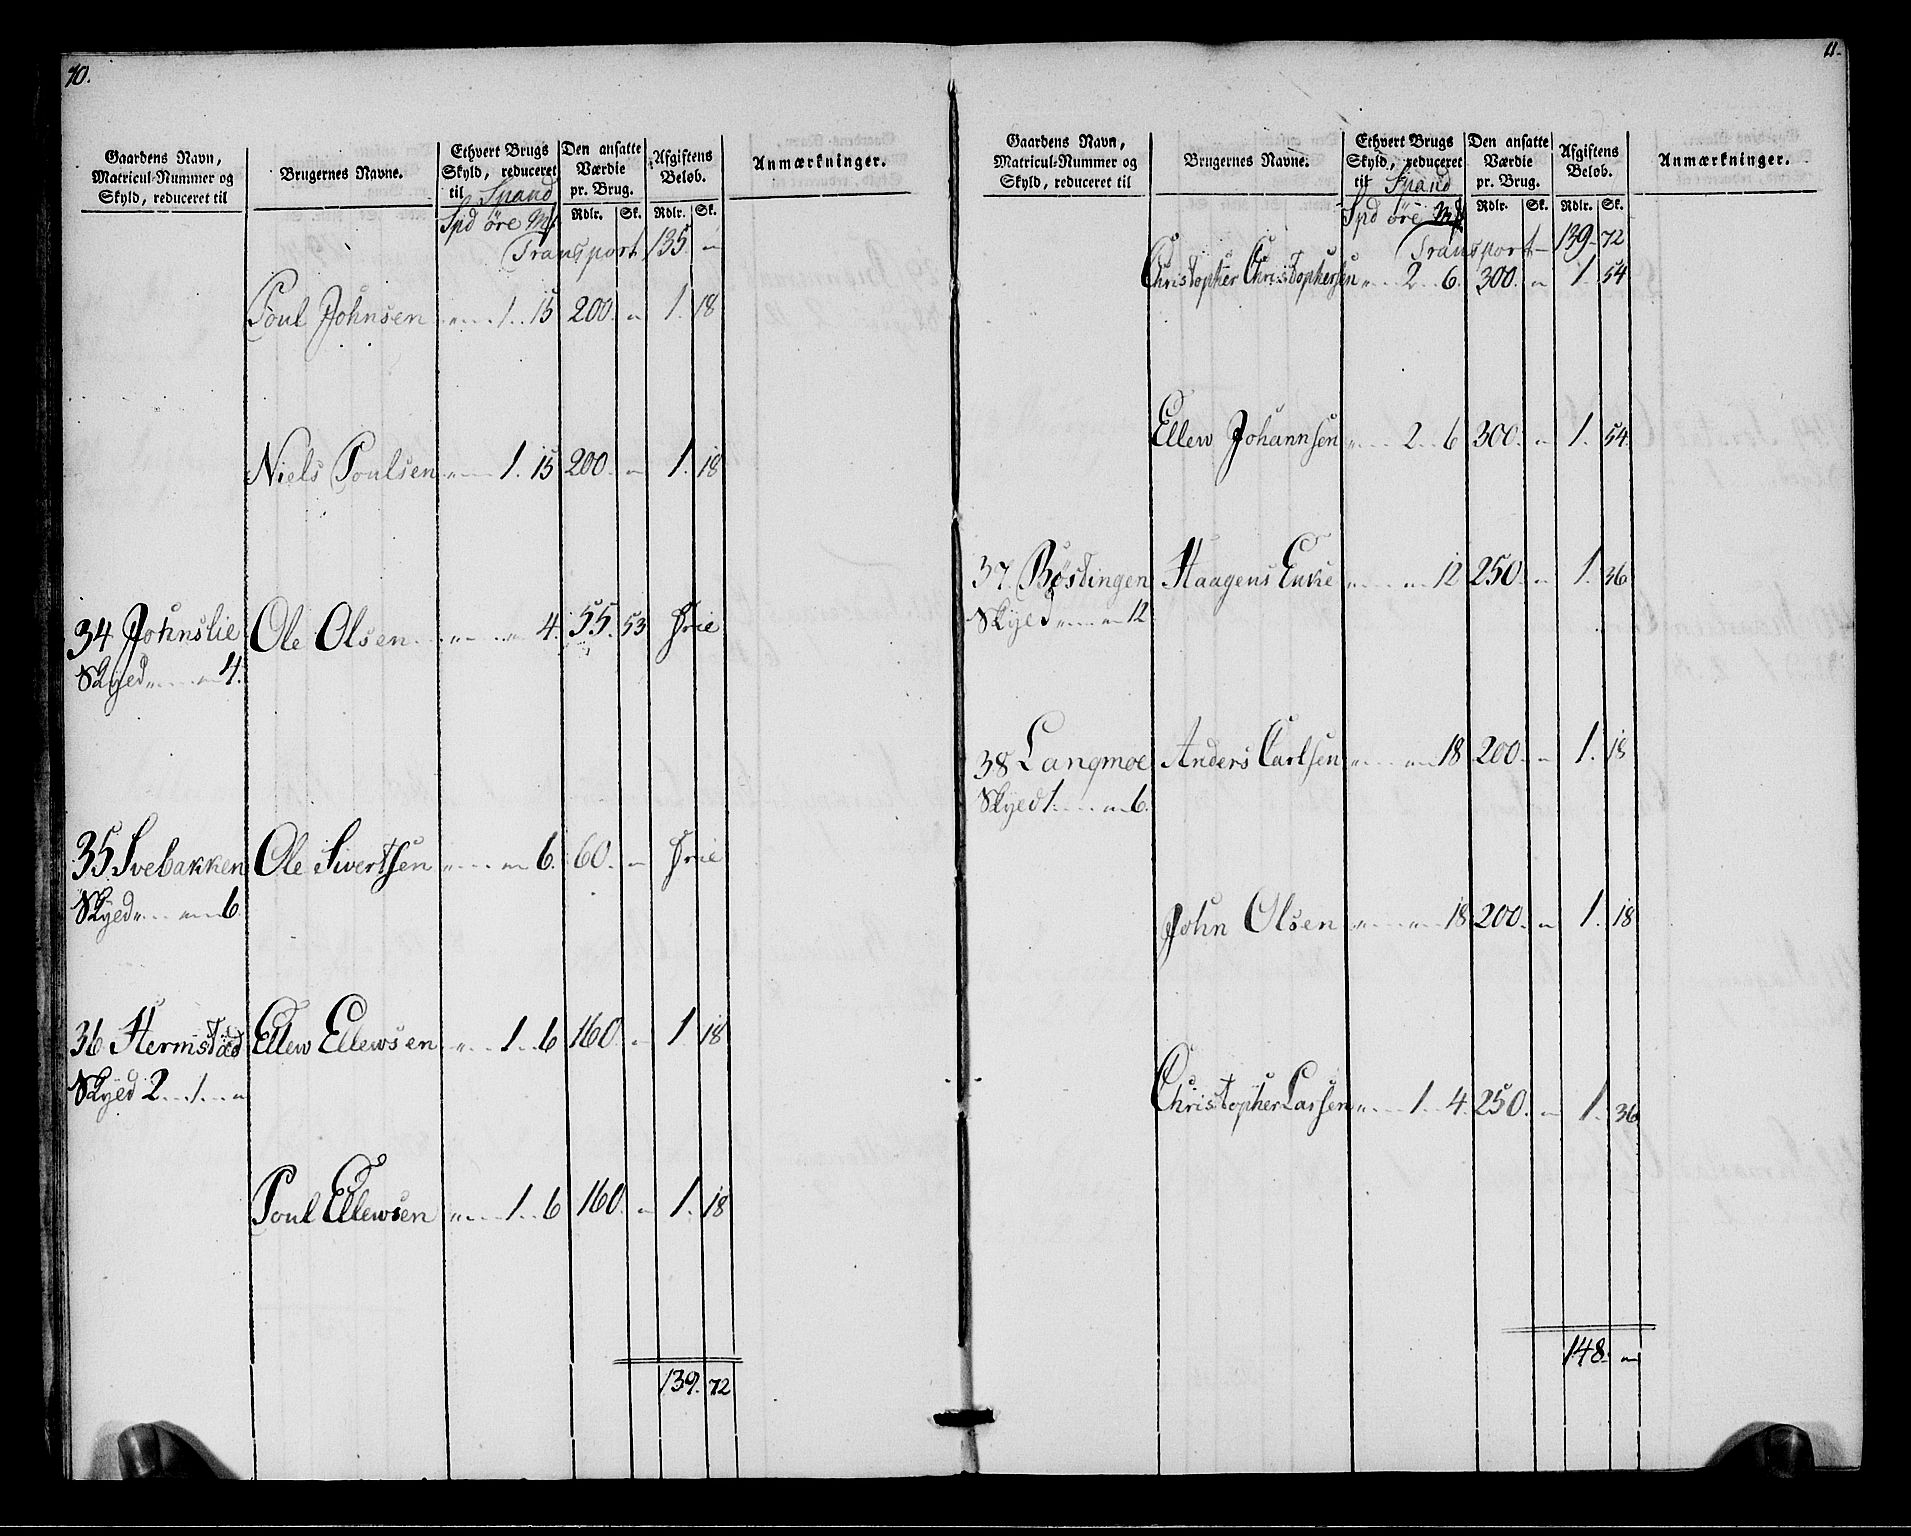 10.
Gaardens Navn, Matricul-Nummer og Skyld, reduceret til
Brugernes Navne.
Ethvert Brugs Skyld, reduceret til Spand
Spd öre Mk
Den ansatte Værdie pr. Brug.
Rdlr. Sk.
Afgiftens Beløb.
Rdlr. Sk.
Anmærkninger.
Transport 135 „
Poul Johnsen „ 1 15 200. „ 1. 18
Niels Poulsen „ 1. 15 200. „ 1. 18
34 Johnslie Ole Olsen „ „ 4. 55. 53 Frie
Skyed „ „ 4.
35 Svebakken Ole Sivertsen „ „ 6. 60. „ Frie
Skyed „ „ 6.
36 Hermstad Ellew Ellewsen „ 1. 6 160. „ 1 18
Skyed 2. 1. „
Poul Ellewsen „ 1. 6 160. „ 1. 18
139. 72
11.
Gaardens Navn, Matricul-Nummer og Skyld, reduceret til
Brugernes Navne.
Ethvert Brugs Skyld, reduceret til Spand
Spd öre Mk
Den ansatte Værdie pr. Brug.
Rdlr. Sk.
Afgiftens Beløb.
Rdlr. Sk.
Anmærkninger.
Transport 139 72
Christopher Christophersen „ 2 6. 300. „ 1 54
Ellew Johannsen „ 2 6 300. „ 1. 54
37. Böstingen Haagens Enke „ „ 12 250. „ 1. 36
Skyed „ „ 12
38 Langmoe Anders Carlsen „ „ 18 200. „ 1. 18
Skyed 1. „ 6.
John Olsen „ „ 18 200. „ 1. 18
Christopher Larsen „ 1. 4. 250. „ 1. 36
148. „